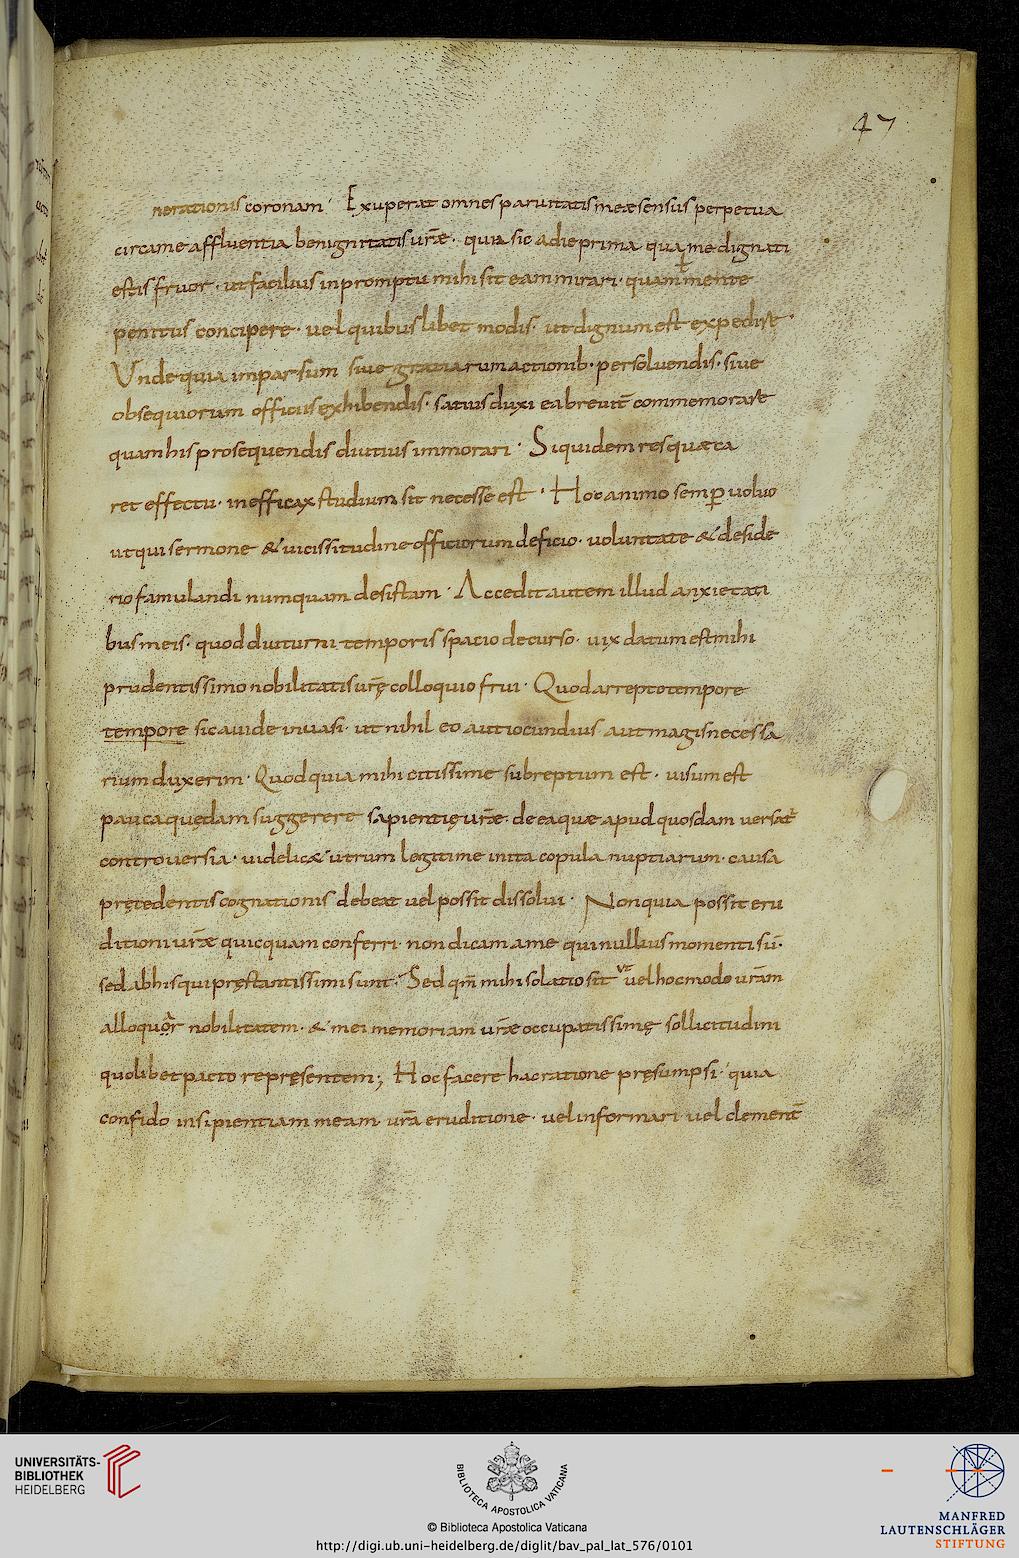 47
nerationis coronam. Exuperat omnes paruitatis meæ sensus perpetua
circa me affluentia benignitatis ur̄æ. quia sic a die prima qua me dignati
estis fruor. ut facilius in promptu mihi sit eam mirari. quam mente
penitus concipere. uel quibuslibet modis. ut dignum est expedire.
Unde quia impar sum siue gratiarum actionib. persoluendis. siue
obsequiorum officiis exhibendis. satius duxi ea breuit̄ commemorare
quam his prosequendis diutius immorari. Siquidem res quæ ca
ret effectu. inefficax studium sit necesse est. Hoc animo semꝑ uoluo
ut qui sermone & uicissitudine officiorum deficio. uoluntate & deside
rio famulandi numquam desistam. Accedit autem illud anxietati
bus meis. quod diuturni temporis spacio decurso. uix datum est mihi
prudentissimo nobilitatis urę̄ colloquio frui. Quod arrepto tempore
tempore sic auide inuasi. ut nihil eo aut iocundius aut magis necessa
rium duxerim. Quod quia mihi citissime subreptum est. uisum est
pauca quędam suggerere sapientię urǣ. de ea quæ apud quosdam uersat᷑
controuersia. uidelic& utrum legitime inita copula nuptiarum. causa
pręcedentis cognationis debeat uel possit dissolui. Non quia possit eru
ditioni urǣ quicquam conferri. non dicam a me qui nullius momenti sū.
sed ab his qui pręstantissimi sunt. Sed qm̄ mihi solatio sit uel hoc modo urām
alloquor nobilitatem. & mei memoriam urǣ occupatissimę sollicitudini
quolibet pacto repręsentem; Hoc facere hac ratione pręsumpsi. quia
confido insipientiam meam urā eruditione. uel informari uel clement̄
UNIVERSITÄTS-
BIBLIOTHEK
HEIDELBERG
BIBLIOTECA APOSTOLICA VATICANA
© Biblioteca Apostolica Vaticana
http://digi.ub.uni-heidelberg.de/diglit/bav_pal_lat_576/0101
MANFRED
LAUTENSCHLÄGER
STIFTUNG